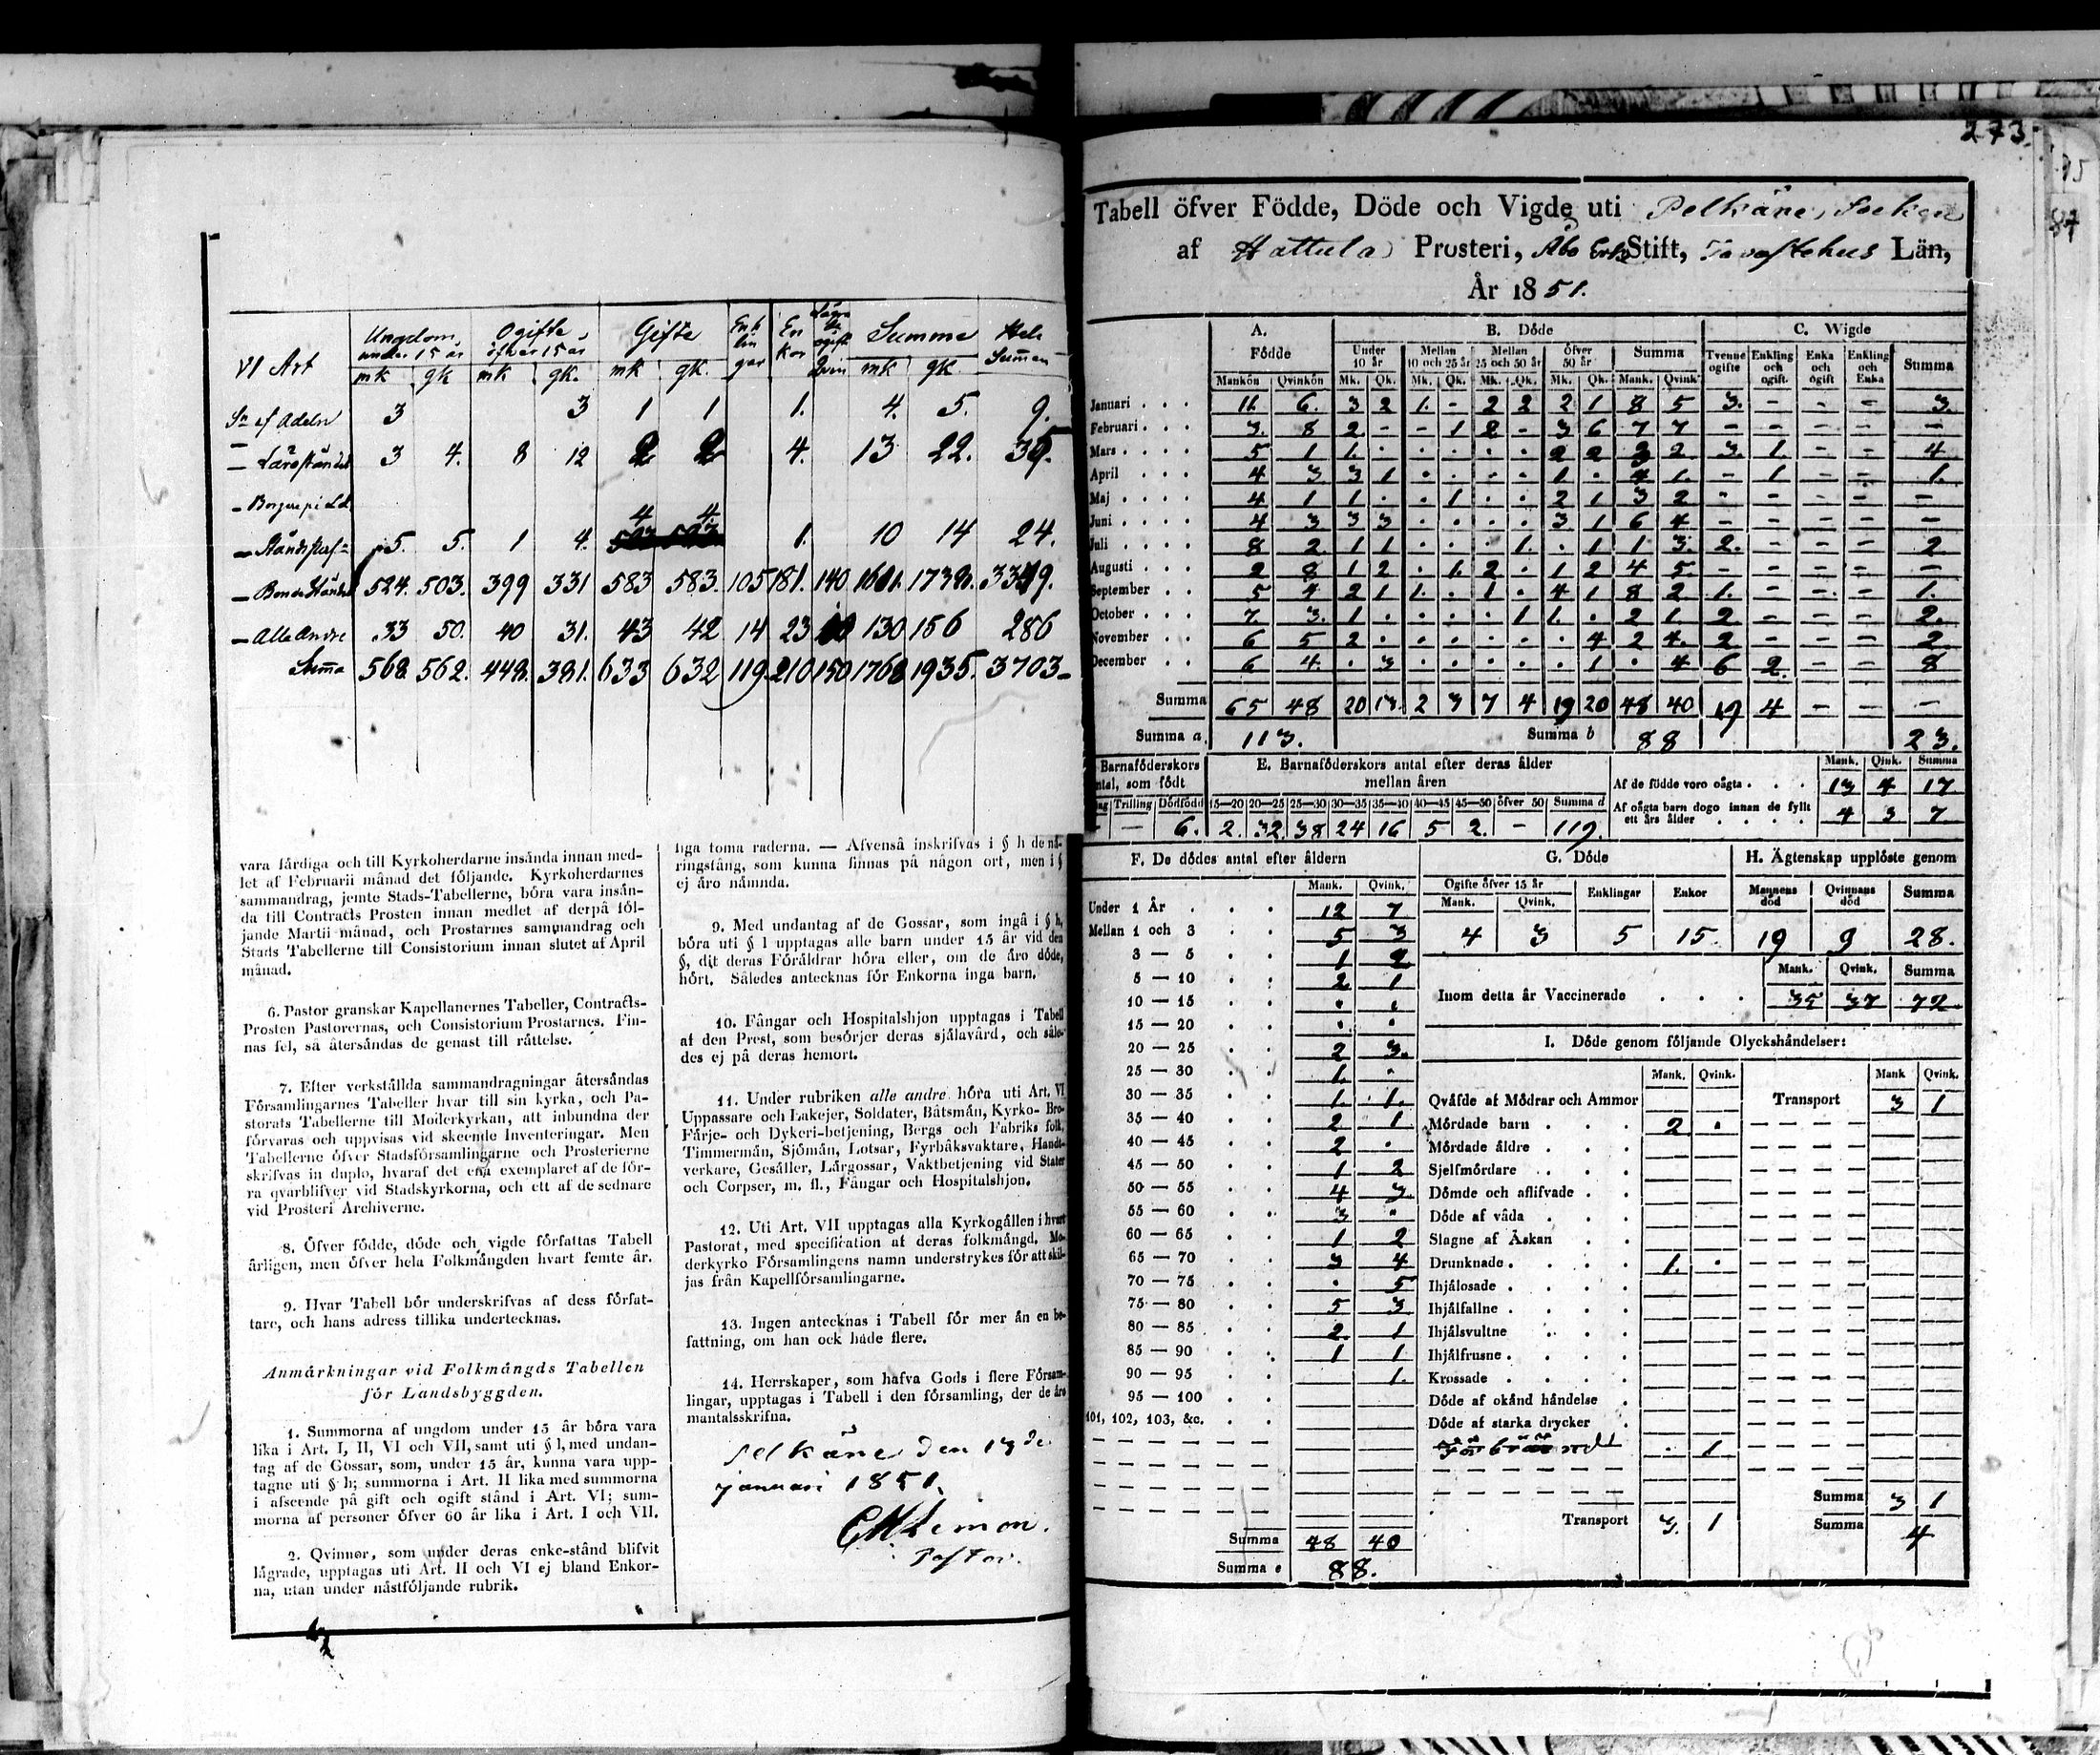 VI Art | Ungdom under 15 år mk qk | Ogifte öfver 15 år mk qk. | Gifte mk qk. | Enk lin gar | En kor | Summa mk qk | Hela Summan
af Adeln 3 3 1 1 1. 4. 5. 9.
Lärostandet 3 4. 8 12 2 2 4. 13 22. 35.
4 4
Ståndspers 5. 5. 1 4. 1. 10 14 24.
Bonde Ståndet 524. 503. 399 331 583 583. 105 181. 140 1611. 1738. 3349.
Alla Andre 33 50. 40 31. 43 42 14 23 10 130 156 286
Summa 568. 562. 448. 381. 633 632 119. 210 150 1768 1935. 3703
vara färdiga och till Kyrkoherdarne insända innan med-
let af Februarii månad det följande. Kyrkoherdarnes
sammandrag, jemte Stads-Tabellerne, böra vara insän-
da till Contracts Prosten innan medlet af derpå föl-
jande Martii månad, och Prostarnes sammandrag och
Stads Tabellerne till Consistorium innan slutet af April
månad.
6. Pastor granskar Kapellanernes Tabeller, Contracts-
Prosten Pastorernas, och Consistorium Prostarnes. Fin-
nas fel, så återsändas de genast till rättelse.
7. Efter verkställda sammandragningar återsändas
Församlingarnes Tabeller hvar till sin kyrka, och Pa-
storats Tabellerne till Moderkyrkan, att inbundna der
förvaras och uppvisas vid skeende Inventeringar. Men
Tabellerne öfver Stadsförsamlingarne och Prosterierne
skrifvas in duplo, hvaraf det ena exemplaret af de för-
ra qvarblifver vid Stadskyrkorna, och ett af de sednare
vid Prosteri Archiverne.
8. Öfver födde, döde och vigde författas Tabell
årligen, men öfver hela Folkmängden hvart femte år.
9. Hvar Tabell bör underskrifvas af dess förfat-
tare, och hans adress tillika undertecknas.
Anmärkningar vid Folkmängds Tabellen
för Landsbyggden.
1. Summorna af ungdom under 15 år böra vara
lika i Art. I, II, VI och VII, samt uti § l, med undan-
tag af de Gossar, som, under 15 år, kunna vara upp-
tagne uti § h; summorna i Art. II lika med summorna
i afseende på gift och ogift stånd i Art. VI; sum-
morna af personer öfver 60 år lika i Art. I och VII.
2. Qvinnor, som under deras enke-stånd blifvit
lägrade, upptagas uti Art. II och VI ej bland Enkor-
na, utan under nästföljande rubrik.
liga toma raderna. — Äfvenså inskrifvas i § h de nä-
ringsfång, som kunna finnas på någon ort, men i §
ej äro nämnda.
9. Med undantag af de Gossar, som ingå i § h,
böra uti § l upptagas alle barn under 15 år vid den
§, dit deras Föräldrar höra eller, om de äro döde,
hört. Således antecknas för Enkorna inga barn.
10. Fångar och Hospitalshjon upptagas i Tabell
af den Prest, som besörjer deras själavård, och såle-
des ej på deras hemort.
11. Under rubriken alle andre höra uti Art. VI
Uppassare och Lakejer, Soldater, Båtsmän, Kyrko- Bro-
Färje- och Dykeri-betjening, Bergs och Fabriks folk,
Timmermän, Sjömän, Lotsar, Fyrbåksvaktare, Handt-
verkare, Gesäller, Lärgossar, Vaktbetjening vid Stater
och Corpser, m. fl., Fångar och Hospitalshjon.
12. Uti Art. VII upptagas alla Kyrkogällen i hvart
Pastorat, med specification af deras folkmängd. Mo-
derkyrko Församlingens namn understrykes för att skil-
jas från Kapellförsamlingarne.
13. Ingen antecknas i Tabell för mer än en be-
fattning, om han ock hade flere.
14. Herrskaper, som hafva Gods i flere Försam-
lingar, upptagas i Tabell i den församling, der de äro
mantalsskrifna.
Pelkäne den 17de
januari 1851.
Pastor.
273.
Tabell öfver Födde, Döde och Vigde uti Pelkäne Socken
af Hattula Prosteri, Åbo Erke Stift, Tavastehus Län,
År 1851.
A. Födde | B. Döde | C. Wigde
Under 10 år | Mellan 10 och 25 år | Mellan 25 och 50 år | Öfver 50 år | Summa | Tvenne ogifte | Enkling och ogift. | Enka och ogift | Enkling och Enka | Summa
Mankön Qvinkön Mk. Qk. Mk. Qk. Mk. Qk. Mk. Qk. Mank. Qvink.
Januari . . . 11. 6. 3 2 1. - 2 2 2 1 8 5 3. - - - 3.
Februari . . . 3. 8 2 - - 1 2 - 3 6 7 7 - - - - -
Mars . . . . 5 1 1. . . . . . 2 2 3 2 3. 1. - - 4
April . . . 4 3 3 1 . . . . 1 . 4 1. - 1 - - 1.
Maj . . . . 4 1 1 . . 1 . . 2 1 3 2 - - - - -
Juni . . . . 4 3 3 3 . . . . 3 1 6 4 - - - - -
Juli . . . . 8 2 1 1 . . . 1. . 1 1 3. 2. - - - 2
Augusti . . . 2 8 1 2 . 1. 2 . 1 2 4 5 - - - - -
September . . 5 4 2 1 1. . 1 . 4 1 8 2 1. - - - 1.
October . . . 7 3. 1 . . . . 1 1. . 2 1. 2 - - - 2.
November . . 6 5 2 . . . . . . 4 2 4. 2 - - - 2
December . . 6 4. . 3 . . . . . 1 . 4 6 2. - - 8
Summa 65 48 20 13. 2 3 7 4 19 20 48 40 19 4 - - -
Summa a. 113. Summa b 88 23.
Barnaföderskors antal, som födt | E. Barnaföderskors antal efter deras ålder mellan åren | Mank. Qink. Summa
Af de födde voro oägta . . . 13 4 17
Trilling Dödfödd 15—20 20—25 25—30 30—35 35—40 40—45 45—50 öfver 50 Summa d
Af oägta barn dogo innan de fyllt ett års ålder . . . . 4 3 7
— 6. 2. 32 38 24 16 5 2. - 119.
F. De dödes antal efter åldern | G. Döde | H. Ägtenskap upplöste genom
Mank. Qvink. | Ogifte öfver 15 år Mank. Qvink. | Enklingar | Enkor | Mannens död | Qvinnans död | Summa
4 3 5 15. 19 9 28.
Under 1 År . . . 12 7
Mellan 1 och 3 . . 5 3
3 — 5 . . 1 2
5 — 10 . . 2 1
10 — 15 . . . .
15 — 20 . . . .
20 — 25 . . 2 3.
25 — 30 . . 1. .
30 — 35 . . 1. 1.
35 — 40 . . 2 1
40 — 45 . . 2 .
45 — 50 . . 1 2
50 — 55 . . 4 3
55 — 60 . . 3 .
60 — 65 . . 1 2
65 — 70 . . 3 4
70 — 75 . . . 5
75 — 80 . . 5 3
80 — 85 . . 2. 1
85 — 90 . . 1 1
90 — 95 . . 1.
95 — 100 . .
101, 102, 103, &c. . .
Summa 48 40
Summa e 88.
Mank. Qvink. Summa
Inom detta år Vaccinerade . . . 35 37 72
I. Döde genom följande Olyckshändelser:
Mank. Qvink. Mank Qvink.
Qväfde af Mödrar och Ammor Transport 3 1
Mördade barn . . . 2 .
Mördade äldre . . .
Sjelfmördare . . .
Dömde och aflifvade . .
Döde af våda . . .
Slagne af Åskan . .
Drunknade . . . . 1. .
Ihjälosade . . . .
Ihjälfallne . . . .
Ihjälsvultne . . .
Ihjälfrusne . . . .
Krossade . . . .
Döde af okänd händelse .
Döde af starka drycker .
Förbränd . 1
Summa 3 1
Transport 3. 1 Summa 4